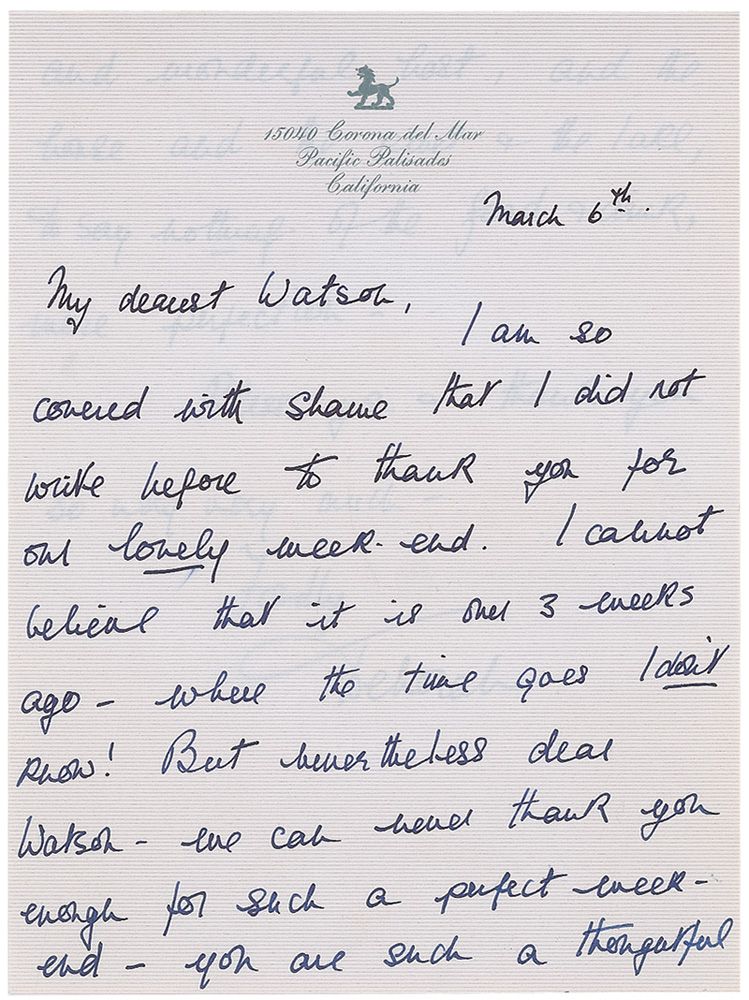 15040 Corona del Mar
Pacific Palisades
California
March 6th.
My dearest Watson,
I am so
covered with shame that I did not
write before to thank you for
our lovely week-end. I cannot
believe that it is over 3 weeks
ago - where the time goes I don't
know! But nevertheless dear
Watson - we can never thank you
enough for such a perfect week-
end - you are such a thoughtful